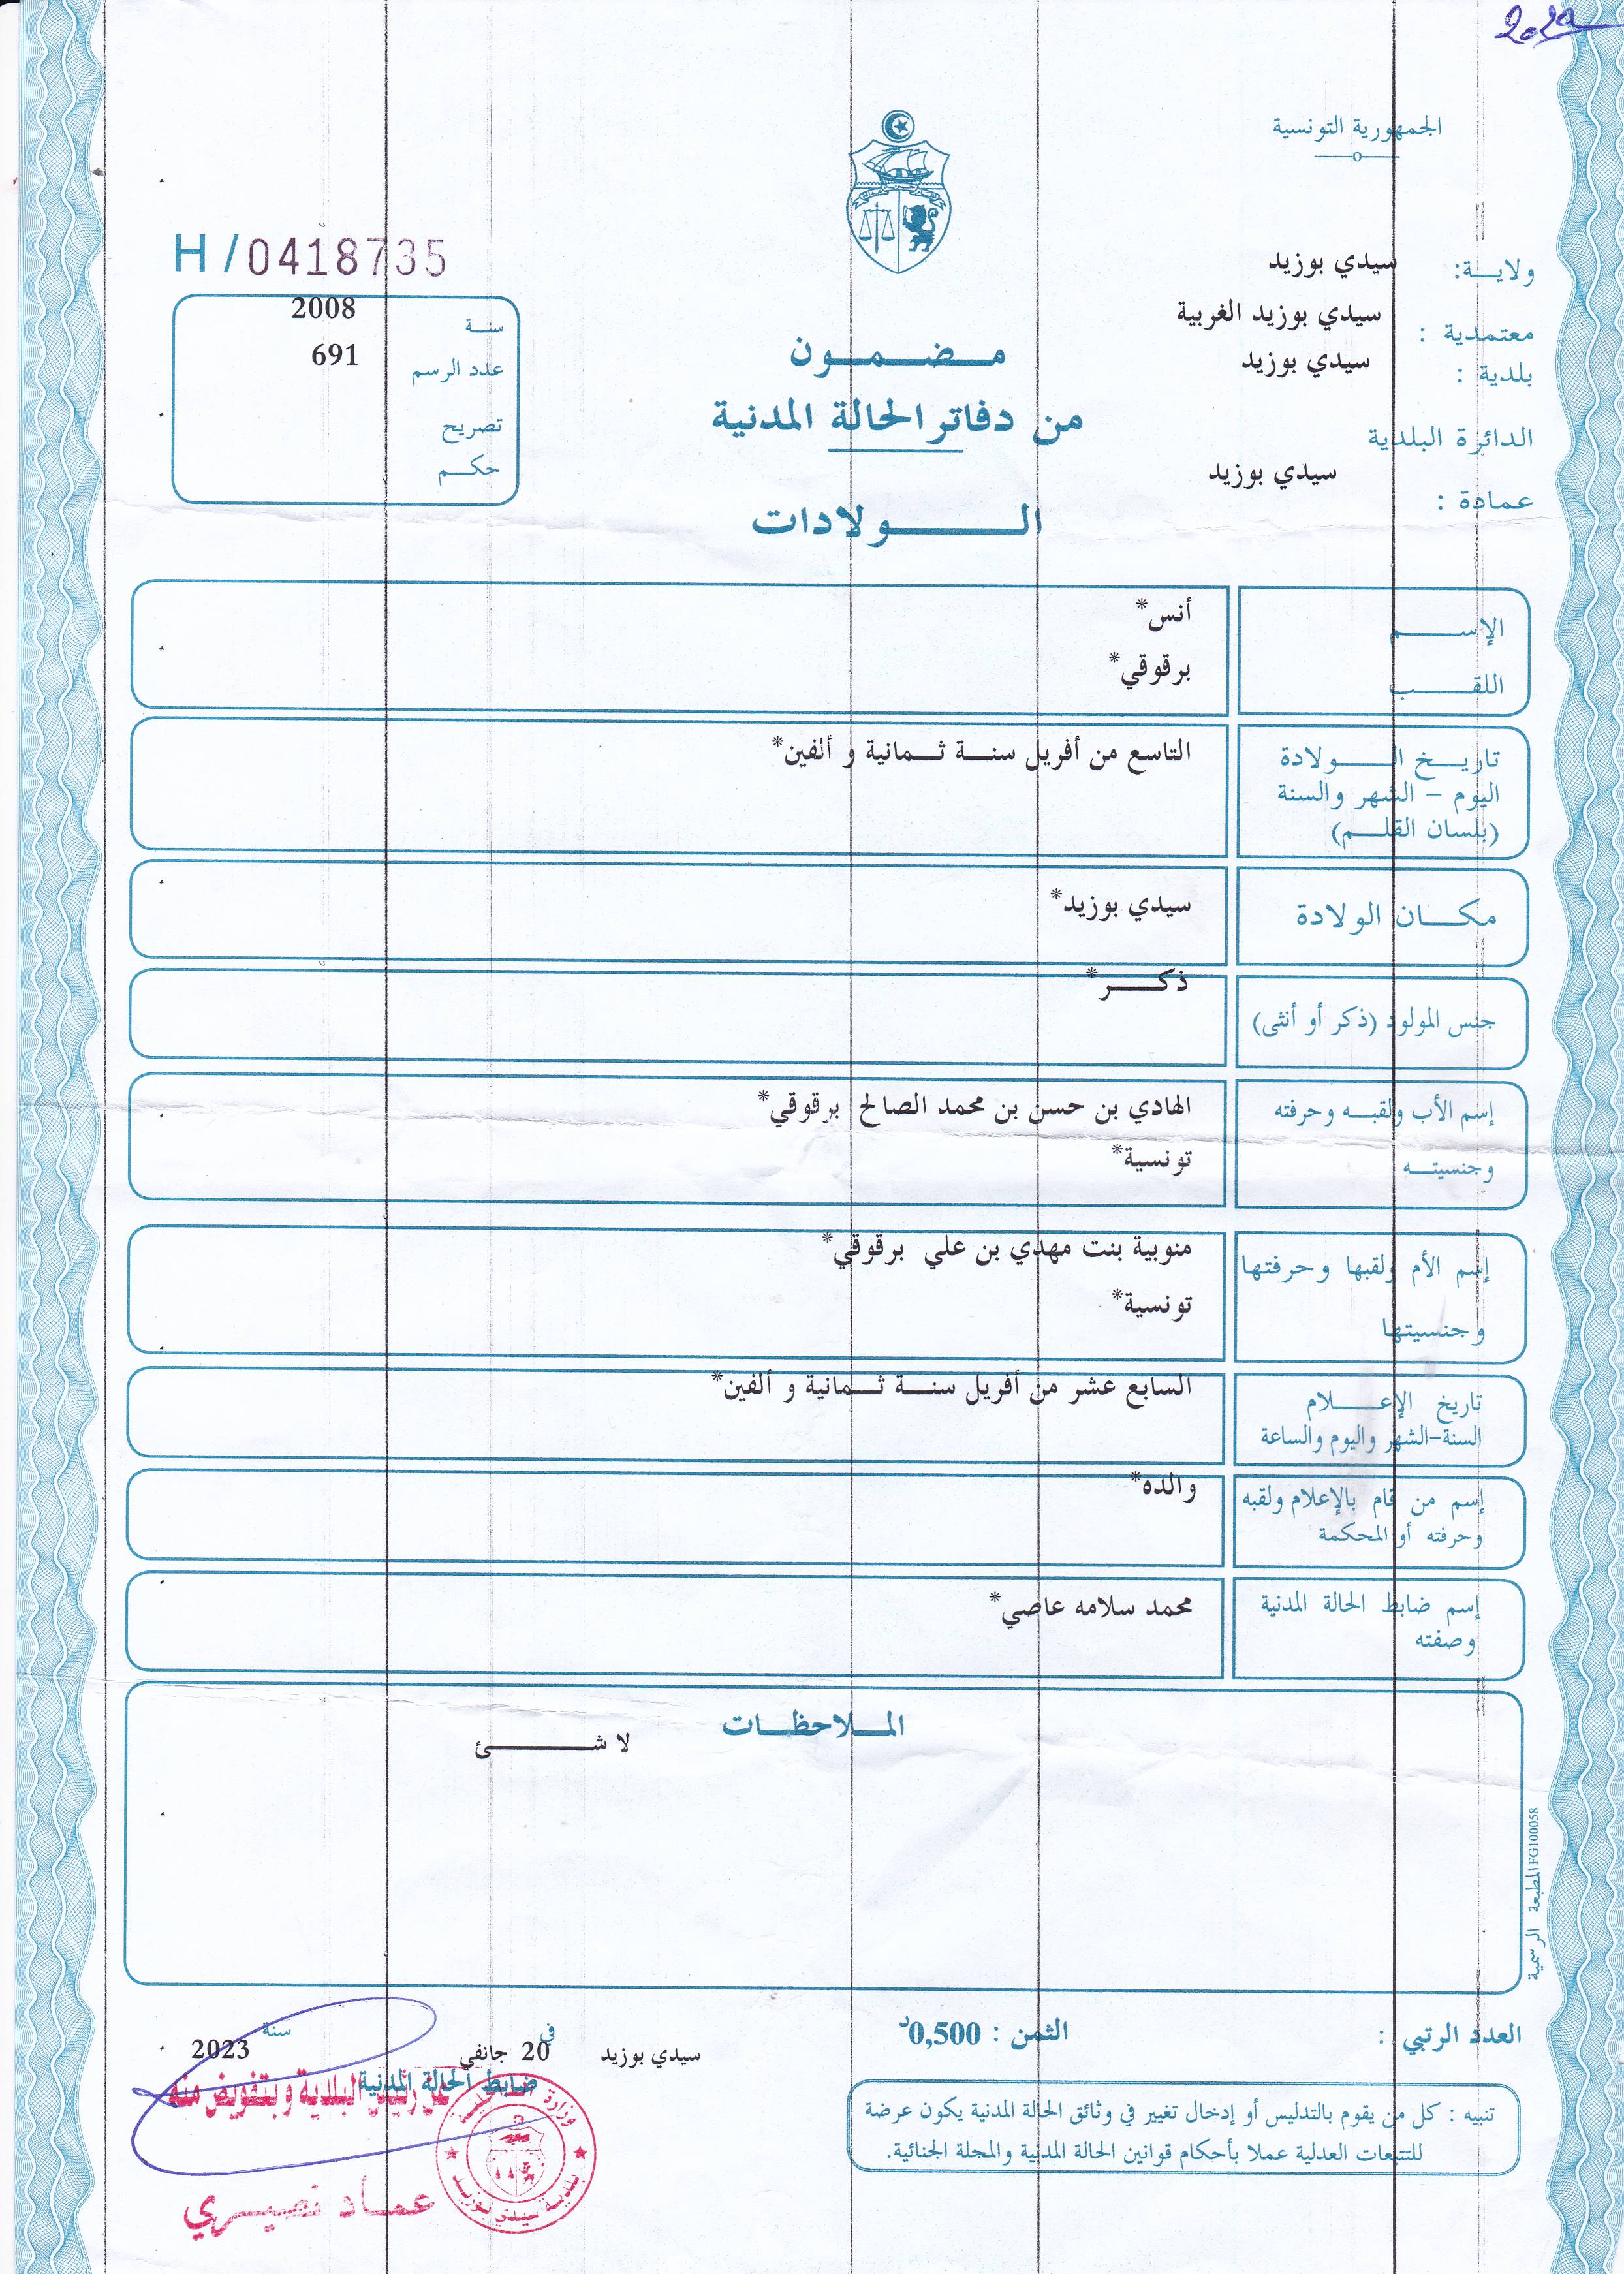 الجمهورية التونسية
H/0418735
ولايـــة: سيدي بوزيد
معتمدية : سيدي بوزيد الغربية
بلدية : سيدي بوزيد
الدائرة البلدية
سيدي بوزيد
عمادة :
سنــة 2008
عدد الرسم 691
تصريح
حكــم
مــضــمــون
من دفاتر الحالة المدنية
الــــــولادات
الإســــــم أنس*
اللقــــــب برقوقي*
تاريــخ الــــولادة التاسع من أفريل سنــة ثــمانية و ألفين*
اليوم – الشهر والسنة
(بلسان القلــم)
مكـــان الولادة سيدي بوزيد*
جنس المولود (ذكر أو أنثى) ذكــــر*
إسم الأب ولقبــه وحرفته الهادي بن حسن بن محمد الصالح برقوقي*
وجنسيتــه تونسية*
إسم الأم ولقبها وحرفتها منوبية بنت مهدي بن علي برقوقي*
وجنسيتها تونسية*
تاريخ الإعــــلام السابع عشر من أفريل سنــة ثــمانية و ألفين*
السنة–الشهر واليوم والساعة
إسم من قام بالإعلام ولقبه والده*
وحرفته أو المحكمة
إسم ضابط الحالة المدنية محمد سلامه عاصي*
وصفته
المــلاحظــات
لا شـــــــئ
المطبعة الرسمية FG100058
العدد الرتبي :
الثمن : 0,500د
سيدي بوزيد في 20 جانفي سنة 2023
ضابط الحالة المدنية
عن رئيس البلدية وبتفويض منه
عماد نصيري
وزارة الداخلية
بلدية سيدي بوزيد
تنبيه : كل من يقوم بالتدليس أو إدخال تغيير في وثائق الحالة المدنية يكون عرضة
للتتبعات العدلية عملا بأحكام قوانين الحالة المدنية والمجلة الجنائية.